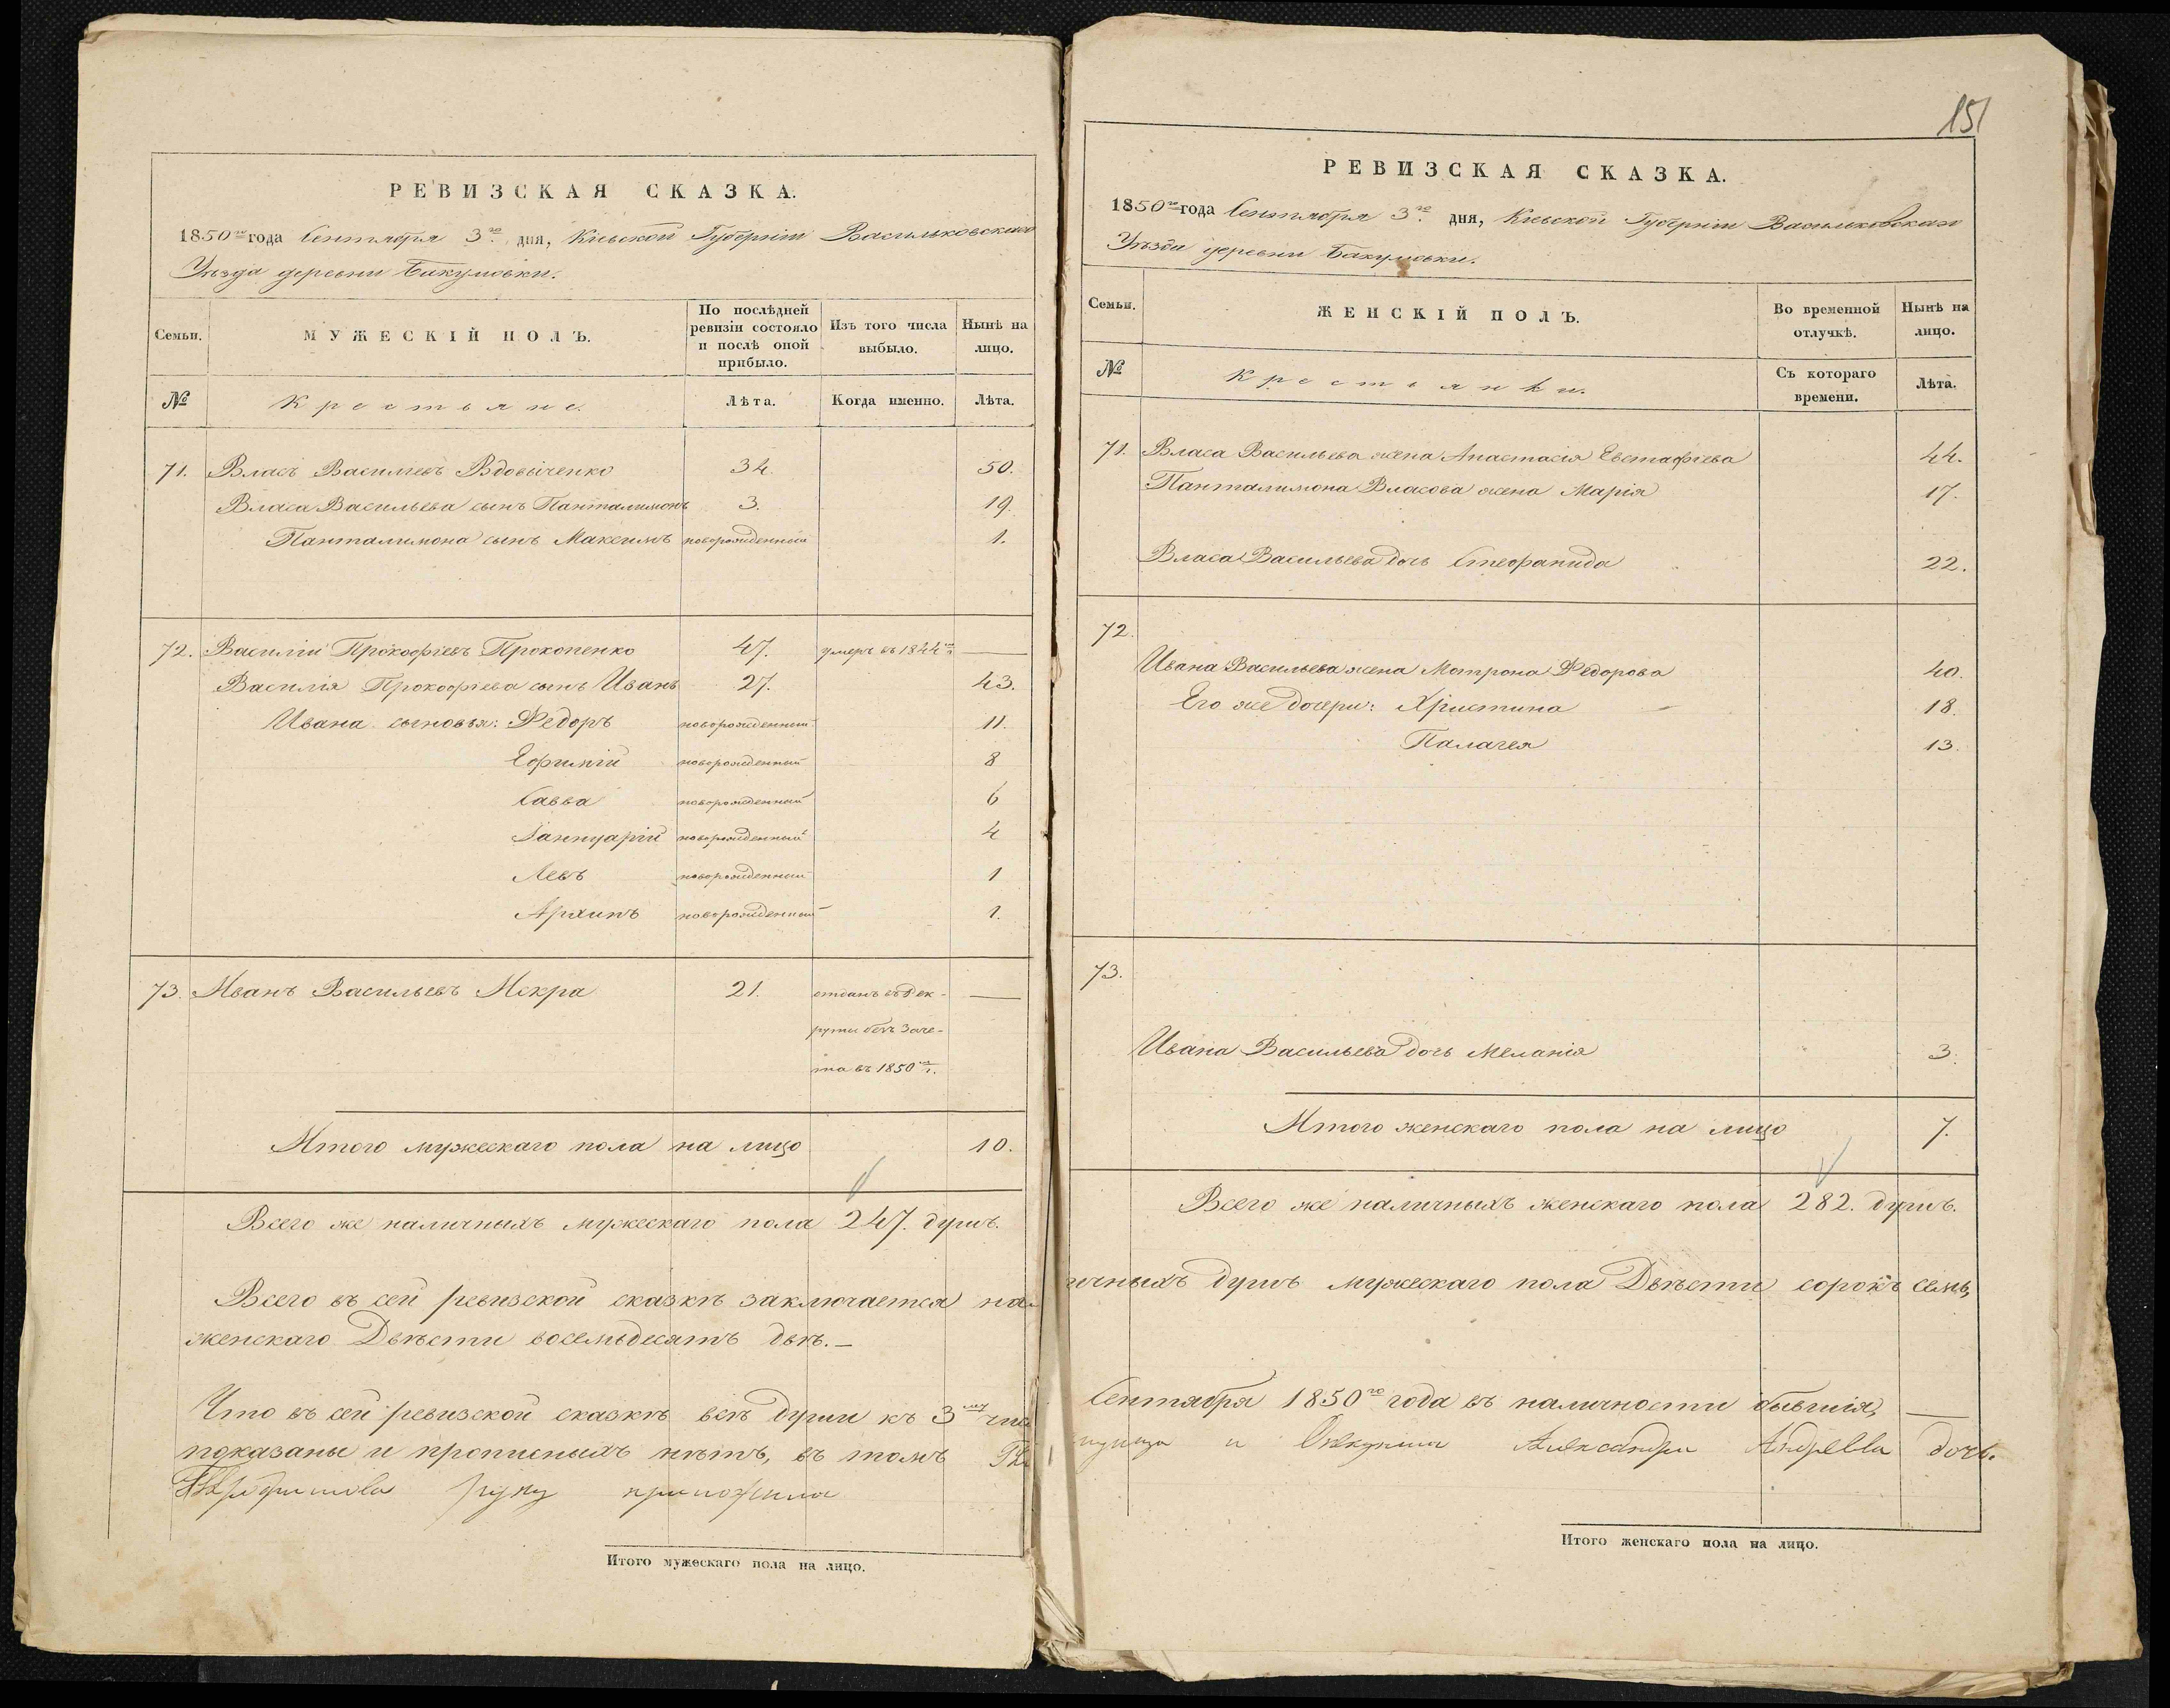 РЕВИЗСКАЯ СКАЗКА.
1850го года Сентября 3го дня, Кіевской Губерніи Васильковскаго
Уѣзда деревни Бакумовки.
Семьи.
МУЖЕСКІЙ ПОЛЪ.
По послѣдней
ревизіи состояло
и послѣ оной
прибыло.
Изъ того числа
выбыло.
Нынѣ на
лицо.
№
Крестьяне.
Лѣта.
Когда именно.
Лѣта.
71. Власъ Васильевъ Вдовиченко 34. 50.
Власа Васильева сынъ Панталимонъ 3. 19.
Панталимона сынъ Максимъ новорожденный 1.
72. Василій Прокофіевъ Прокопенко 47. умеръ въ 1844го —
Василія Прокофіева сынъ Иванъ 27. 43.
Ивана сыновья: Федоръ новорожденный 11.
Ефимій новорожденный 8
Савва новорожденный 6
Іаннуарій новорожденный 4
Левъ новорожденный 1
Архипъ новорожденный 1.
73. Иванъ Васильевъ Искра 21. отданъ въ Рек- —
руты безъ Заче-
та въ 1850 г.
Итого мужескаго пола на лицо 10.
Всего же наличныхъ мужескаго пола 247. душъ.
Всего въ сей ревизской сказкѣ заключается на
женскаго Двѣсти восемьдесятъ двѣ.—
Что въ сей ревизской сказкѣ всѣ души къ 3му
показаны и прописныхъ нѣтъ, въ томъ
руку приложила
Итого мужескаго пола на лицо.
151
РЕВИЗСКАЯ СКАЗКА.
1850го года Сентября 3го дня, Кіевской Губерніи Васильковскаго
Уѣзда деревни Бакумовки.
Семьи.
ЖЕНСКІЙ ПОЛЪ.
Во временной
отлучкѣ.
Нынѣ на
лицо.
№
Крестьянки.
Съ котораго
времени.
Лѣта.
71. Власа Васильева жена Анастасія Евстафіева 44.
Панталимона Власова жена Марія 17.
Власа Васильева дочь Стефанида 22.
72.
Ивана Васильева жена Матрона Федорова 40.
Его же дочери: Христина 18.
Палагея 13.
73.
Ивана Васильева дочь Меланія 3.
Итого женскаго пола на лицо 7.
Всего же наличныхъ женскаго пола 282. душъ.
ичныхъ душъ мужескаго пола Двѣсти сорокъ семь,
Сентября 1850го года въ наличности бывшія,
и Опекунша Александра Андреева дочь.
Итого женскаго пола на лицо.